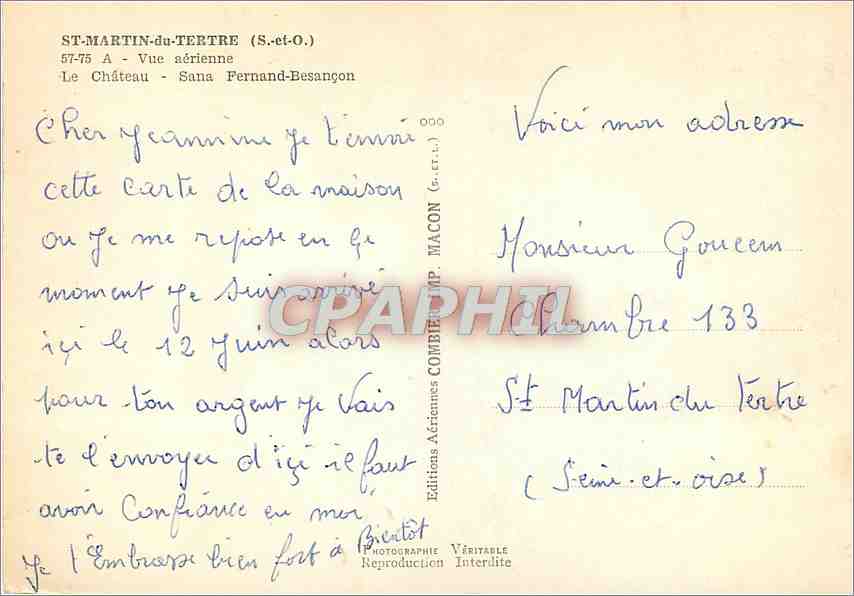 ST-MARTIN-du-TERTRE (S.-et-O.)
57-75 A - Vue aérienne
Le Château - Sana Fernand-Besançon
Cher Jeannine Je t'envoie
cette carte de la maison
ou Je me repose en ce
moment Je suis arrivé
içi le 12 Juin alors
pour ton argent Je Vais
te l'envoyer d'içi il faut
avoir Confiance en moi
Je t'Embrasse bien fort à Bientôt
Editions Aériennes COMBIER IMP. MACON (S.-ET-L.)
Voici mon adresse
Monsieur Goucem
Chambre 133
St Martin du Tertre
(Seine-et-oise)
PHOTOGRAPHIE VÉRITABLE
Reproduction Interdite
CPAPHIL